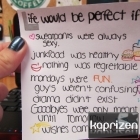 life would be perfect if
sweatpants were always
sexy.
junkfood was healthy
nothing was regretable
mondays were FUN.
guys weren't confusing
drama didn't exist
Goodbyes were only meant
until tomorrow
wishes came
koprizen